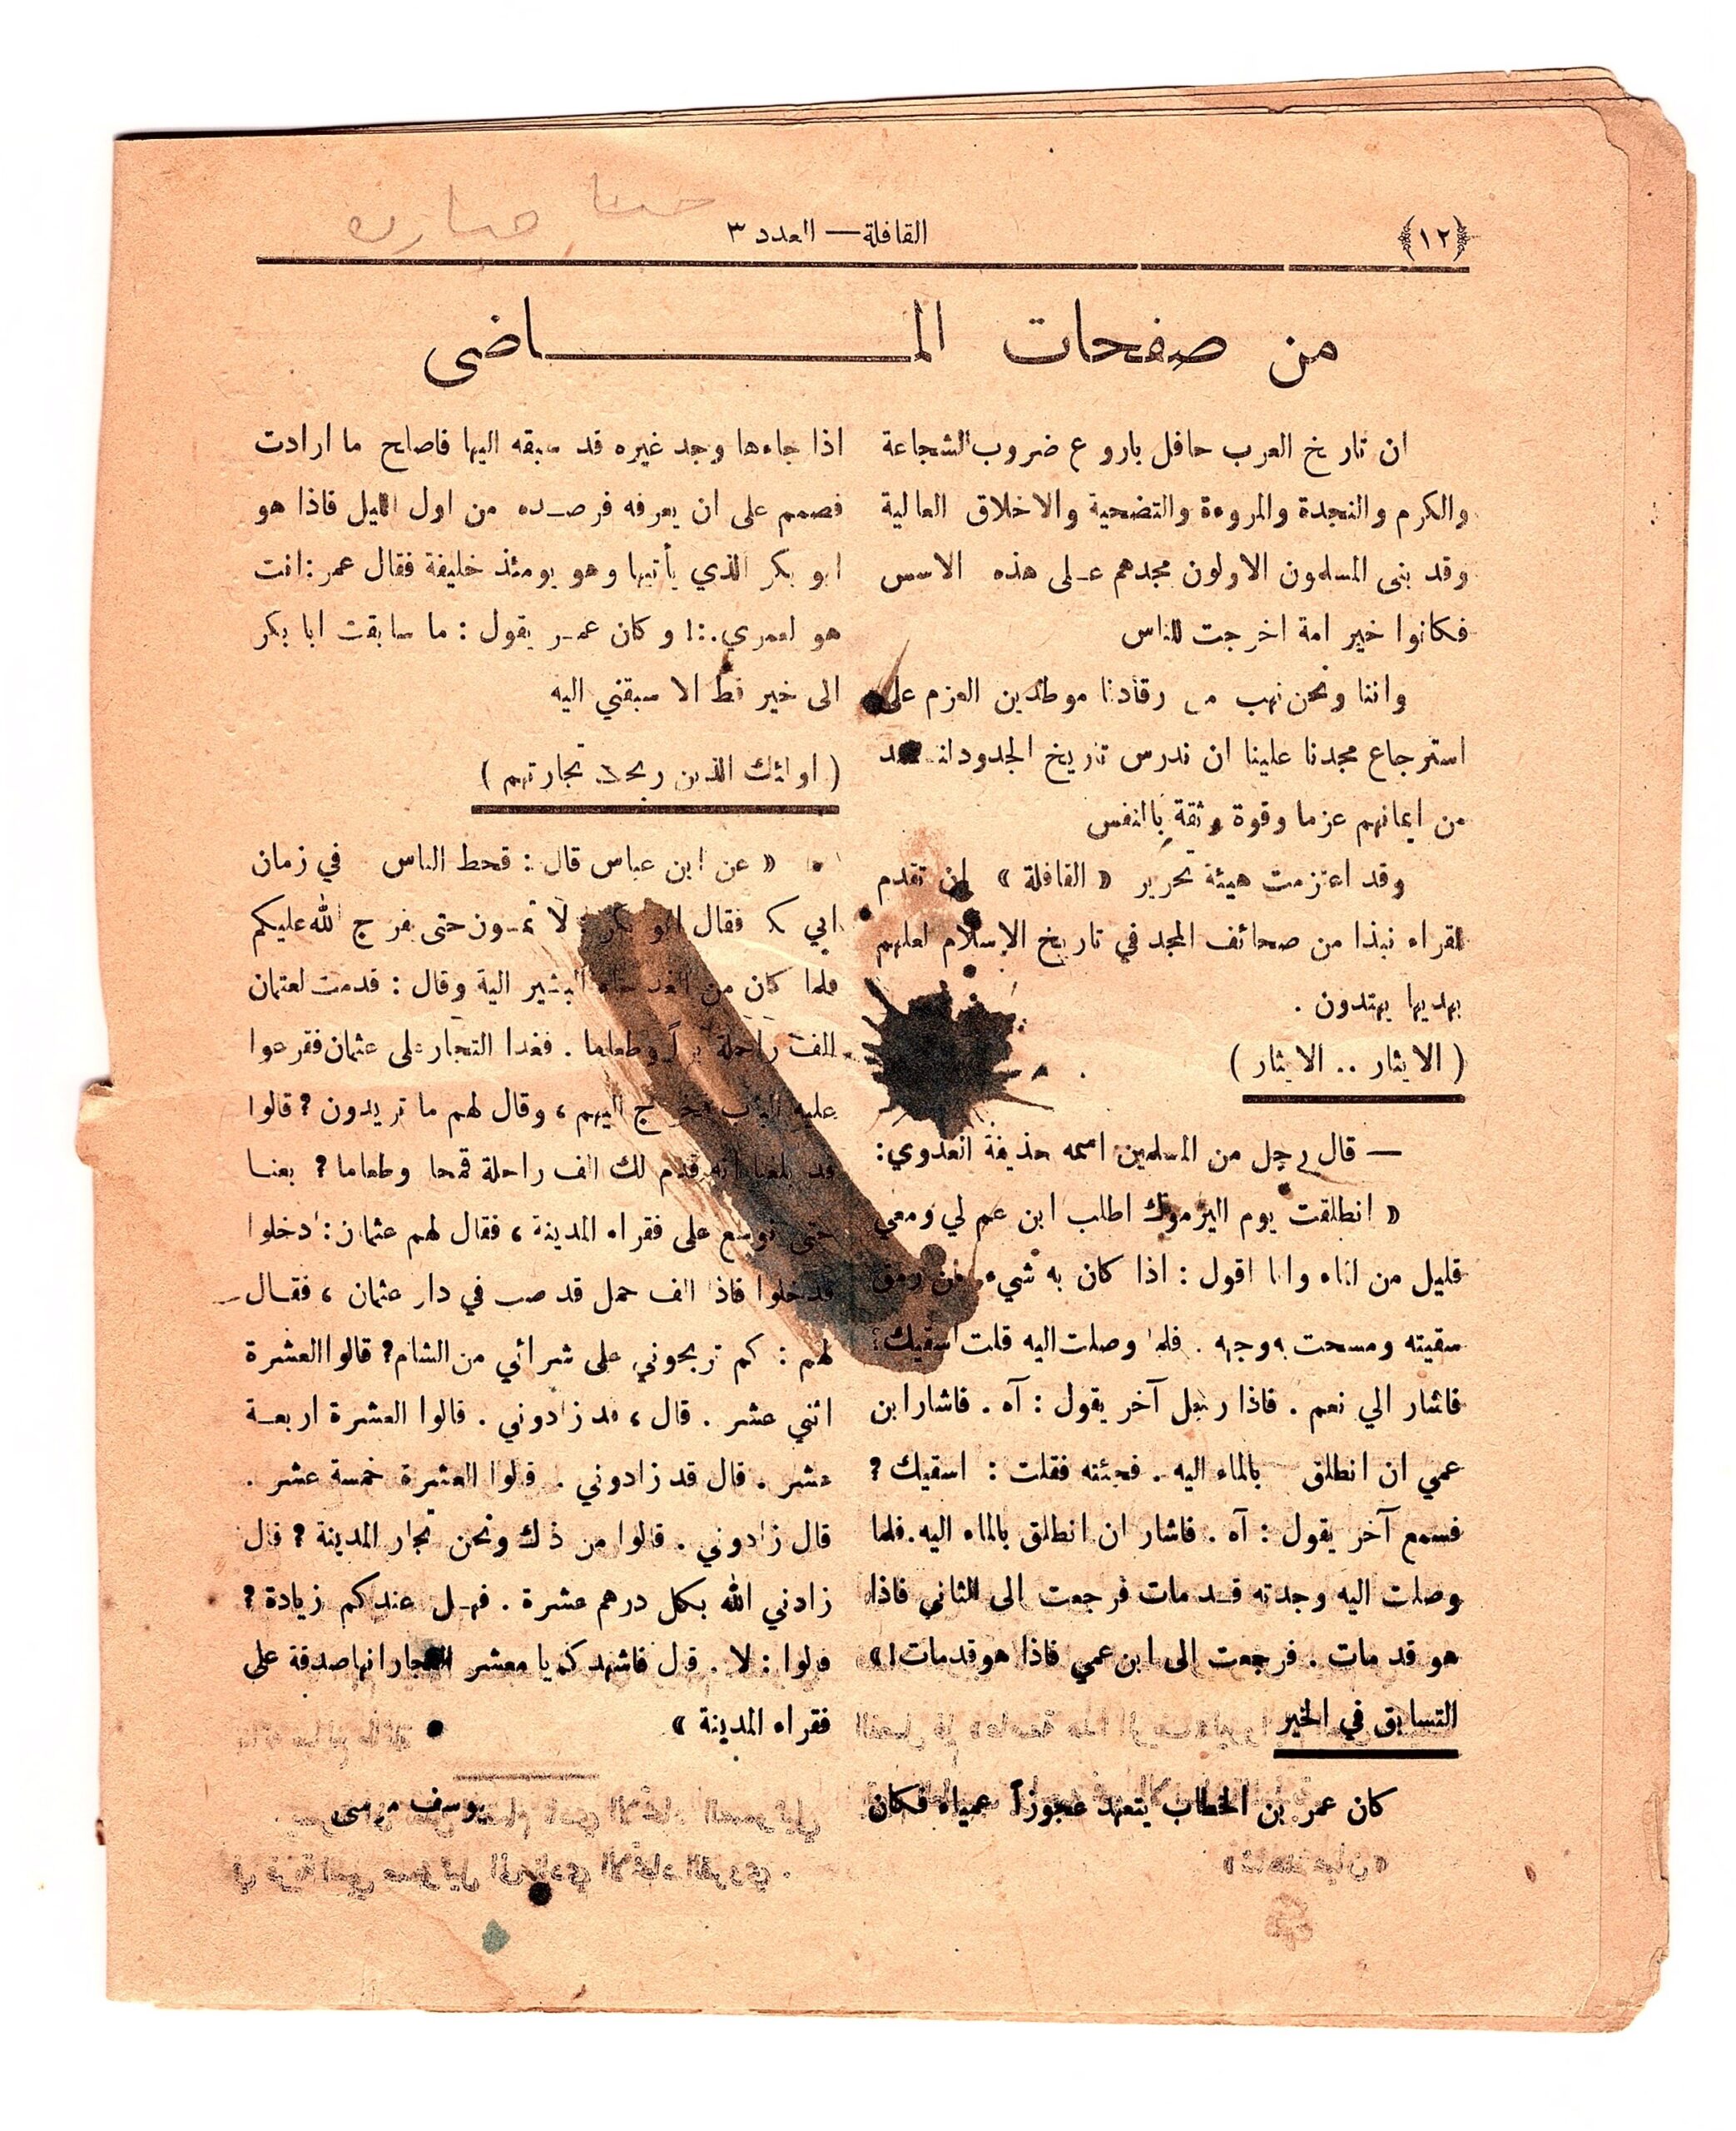 ﴿١٢﴾
القافلة — العدد ٣
من صفحات الماضى
ان تاريخ العرب حافل باروع ضروب الشجاعة
والكرم والنجدة والمروءة والتضحية والاخلاق العالية
وقد بنى المسلمون الاولون مجدهم على هذه الاسس
فكانوا خير امة اخرجت للناس
واننا ونحن نهب من رقادنا موطدين العزم على
استرجاع مجدنا علينا ان ندرس تاريخ الجدود
من ايمانهم عزما وقوة وثقة بالنفس
وقد اعتزمت هيئة تحرير « القافلة » ان تقدم
لقراء نبذا من صحائف المجد في تاريخ الإسلام لعلهم
بهديها يهتدون .
( الايثار .. الايثار )
— قال رجل من المسلمين اسمه حذيفة العدوي :
« انطلقت يوم اليرموك اطلب ابن عم لي ومعي
قليل من الماء وانا اقول : اذا كان به شيء من رمق
سقيته ومسحت به وجهه . فلما وصلت اليه قلت اسقيك ؟
فاشار الي نعم . فاذا رجل آخر يقول : آه . فاشار ابن
عمي ان انطلق بالماء اليه . فجئته فقلت : اسقيك ؟
فسمع آخر يقول : آه . فاشار ان انطلق بالماء اليه . فلما
وصلت اليه وجدته قد مات فرجعت الى الثاني فاذا
هو قد مات . فرجعت الى ابن عمي فاذا هو قد مات ! »
التسابق في الخير
كان عمر بن الخطاب يتعهد عجوزاً عمياء فكان
اذا جاءها وجد غيره قد سبقه اليها فاصلح ما ارادت
فصمم على ان يعرفه فرصده من اول الليل فاذا هو
ابو بكر الذي يأتيها وهو يومئذ خليفة فقال عمر : انت
هو لعمري . : ! وكان عمر يقول : ما سابقت ابا بكر
الى خير قط الا سبقني اليه
( اولئك الذين ربحت تجارتهم )
• « عن ابن عباس قال : قحط الناس في زمان
ابي بكر فقال ابو بكر لا تمسون حتى يفرج الله عليكم
فلما كان من الغد جاء البشير الية وقال : قدمت لعثمان
الف راحلة براً وطعاما . فغدا التجار على عثمان فقرعوا
عليه الباب فخرج اليهم ، وقال لهم ما تريدون ؟ قالوا
قد بلغنا انه قدم لك الف راحلة قمحا وطعاما ؟ بعنا
حتى نوسع على فقراء المدينة ، فقال لهم عثمان : ادخلوا
فدخلوا فاذا الف حمل قد صب في دار عثمان ، فقال
لهم : كم تربحوني على شرائي من الشام ؟ قالوا العشرة
اثني عشر . قال ، قد زادوني . قالوا العشرة اربعة
عشر . قال قد زادوني . قالوا العشرة خمسة عشر .
قال زادوني . قالوا من ذلك ونحن تجار المدينة ؟ قال
زادني الله بكل درهم عشرة . فهل عندكم زيادة ؟
قالوا : لا . قال فاشهدكم يا معشر التجار انها صدقة على
فقراء المدينة »
يوسف موسى